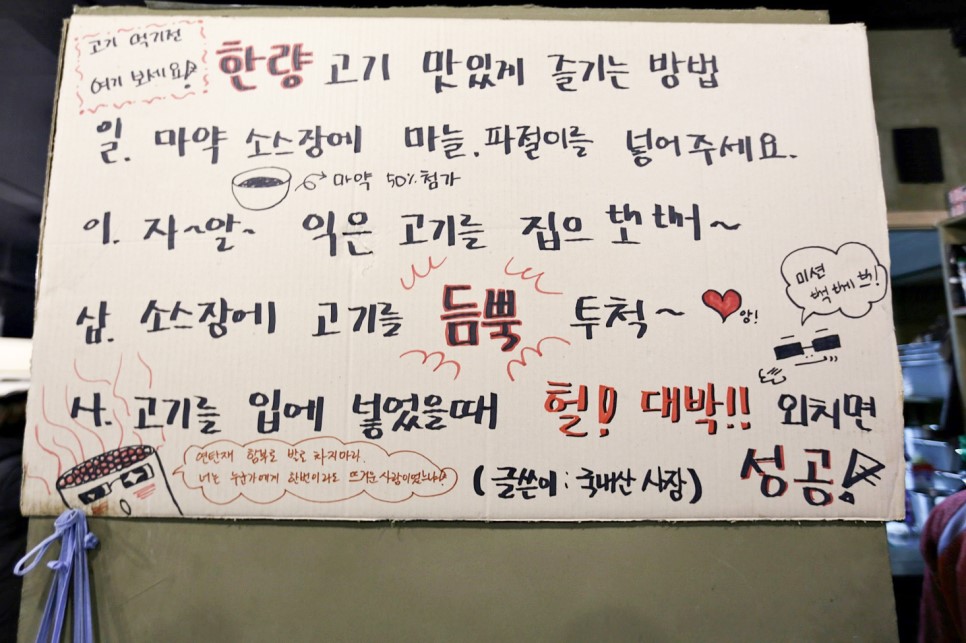 고기 먹기전
여기 보세요!
한량 고기 맛있게 즐기는 방법
일. 마약 소스장에 마늘.파절이를 넣어주세요.
마약 50% 첨가
이. 자~알~ 익은 고기를 집으
삼. 소스장에 고기를 듬뿍 투척~
앙!
미션
사. 고기를 입에 넣었을때 헐! 대박!! 외치면
성공!
연탄재 함부로 발로 차지마라.
너는 누군가에게 한번이라도 뜨거운 사람이였느냐
(글쓴이 : 국내산 사장)